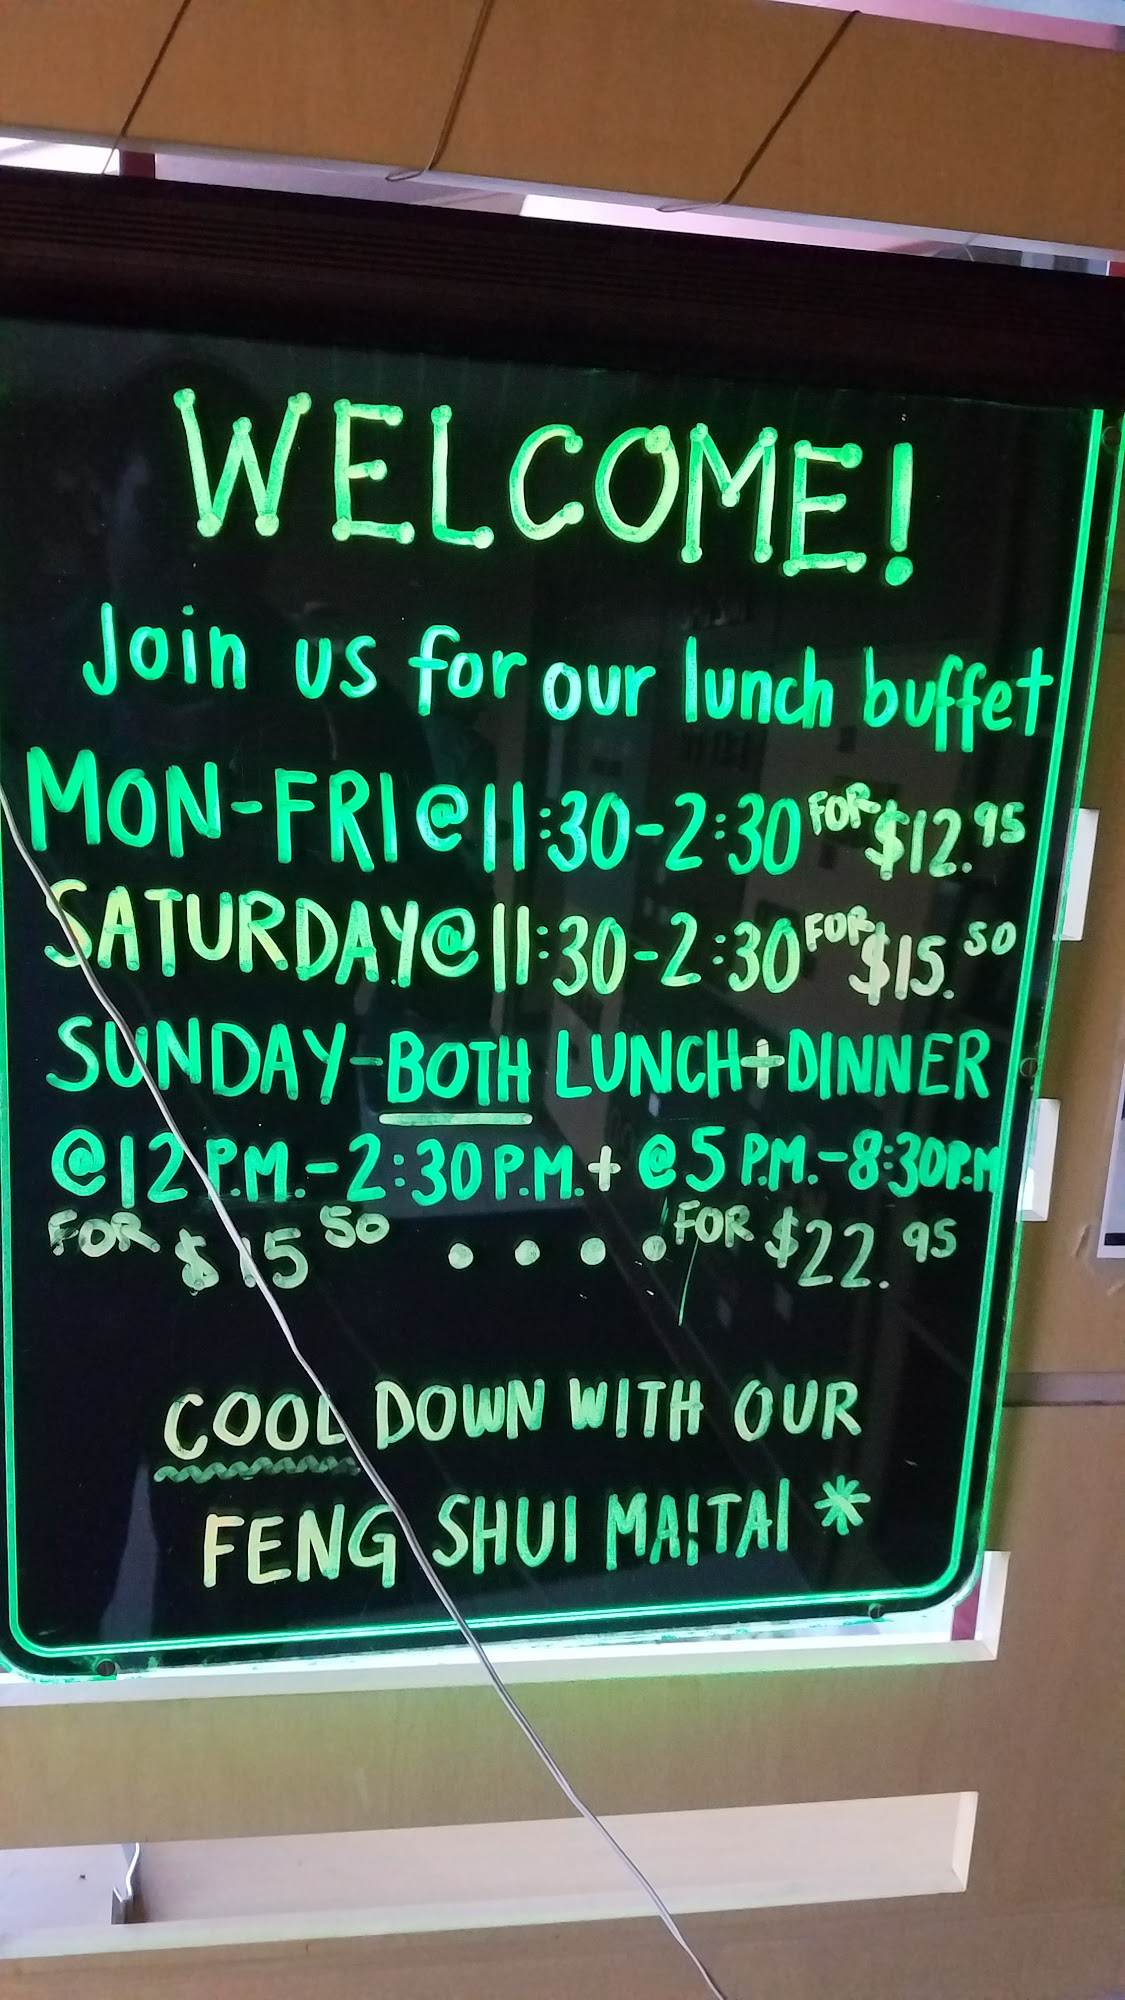 WELCOME!
Join us for our lunch buffet
MON-FRI @ 11:30-2:30 FOR $12.95
SATURDAY @ 11:30-2:30 FOR $15.50
SUNDAY-BOTH LUNCH+DINNER
@ 12 P.M.-2:30 P.M. + @ 5 P.M.-8:30P.M
FOR $15 50 .... FOR $22.95
COOL DOWN WITH OUR
FENG SHUI MAITAI *